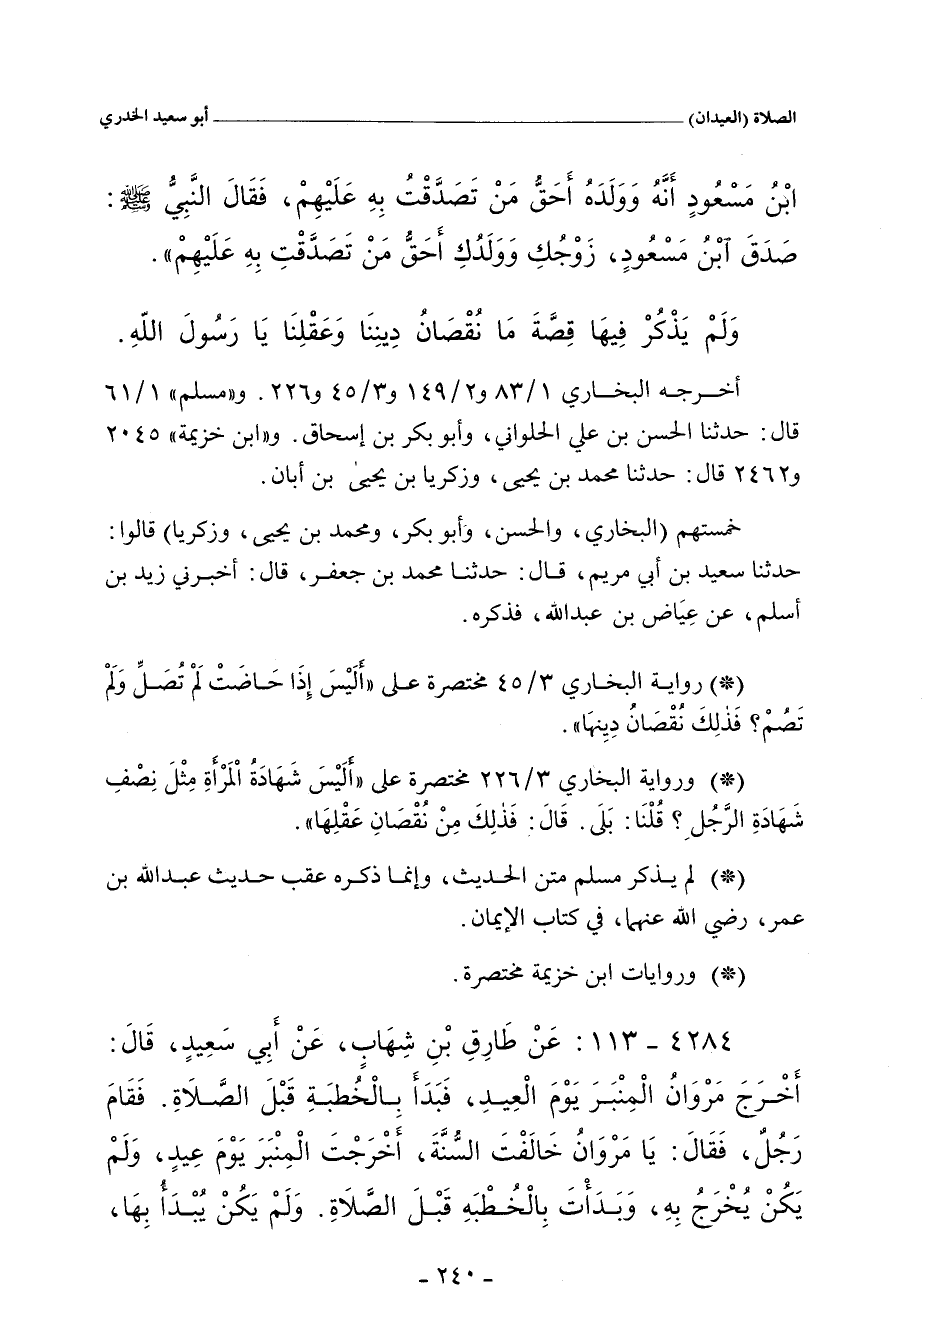 الصلاة (العيدان) ـــــــــــــــــــــــــــــــــــــــــــــ أبو سعيد الخدري
ابْنُ مَسْعُودٍ أَنَّهُ وَوَلَدَهُ أَحَقُّ مَنْ تَصَدَّقْتُ بِهِ عَلَيْهِمْ، فَقَالَ النَّبِيُّ ﷺ :
صَدَقَ ٱبْنُ مَسْعُودٍ، زَوْجُكِ وَوَلَدُكِ أَحَقُّ مَنْ تَصَدَّقْتِ بِهِ عَلَيْهِمْ» .
وَلَمْ يَذْكُرْ فِيهَا قِصَّةَ مَا نُقْصَانُ دِينِنَا وَعَقْلِنَا يَا رَسُولَ اللّهِ .
أخرجه البخاري ٨٣/١ و١٤٩/٢ و٤٥/٣ و٢٢٦ . و«مسلم» ٦١/١
قال: حدثنا الحسن بن علي الحلواني، وأبو بكر بن إسحاق. و«ابن خزيمة» ٢٠٤٥
و٢٤٦٢ قال: حدثنا محمد بن يحيى، وزكريا بن يحيىٰ بن أبان.
خمستهم (البخاري، والحسن، وأبو بكر، ومحمد بن يحيى، وزكريا) قالوا:
حدثنا سعيد بن أبي مريم، قال: حدثنا محمد بن جعفر، قال: أخبرني زيد بن
أسلم، عن عِيَاض بن عبدالله، فذكره.
(*) رواية البخاري ٤٥/٣ مختصرة على «أَلَيْسَ إِذَا حَاضَتْ لَمْ تُصَلِّ وَلَمْ
تَصُمْ؟ فَذٰلِكَ نُقْصَانُ دِينِهَا».
(*) ورواية البخاري ٢٢٦/٣ مختصرة على «أَلَيْسَ شَهَادَةُ الْمَرْأَةِ مِثْلَ نِصْفِ
شَهَادَةِ الرَّجُلِ؟ قُلْنَا: بَلَى. قَالَ: فَذٰلِكَ مِنْ نُقْصَانِ عَقْلِهَا».
(*) لم يذكر مسلم متن الحديث، وإنما ذكره عقب حديث عبدالله بن
عمر، رضي الله عنهما، في كتاب الإيمان.
(*) وروايات ابن خزيمة مختصرة.
٤٢٨٤ ـ ١١٣ : عَنْ طَارِقِ بْنِ شِهَابٍ، عَنْ أَبِي سَعِيدٍ، قَالَ:
أَخْرَجَ مَرْوَانُ الْمِنْبَرَ يَوْمَ الْعِيدِ، فَبَدَأَ بِالْخُطبَةِ قَبْلَ الصَّلَاةِ. فَقَامَ
رَجُلٌ، فَقَالَ: يَا مَرْوَانُ خَالَفْتَ السُّنَّةَ، أَخْرَجْتَ الْمِنْبَرَ يَوْمَ عِيدٍ، وَلَمْ
يَكُنْ يُخْرَجُ بِهِ، وَبَدَأْتَ بِالْخُطْبَهِ قَبْلَ الصَّلَاةِ. وَلَمْ يَكُنْ يُبْدَأُ بِهَا،
ـ ٢٤٠ ـ